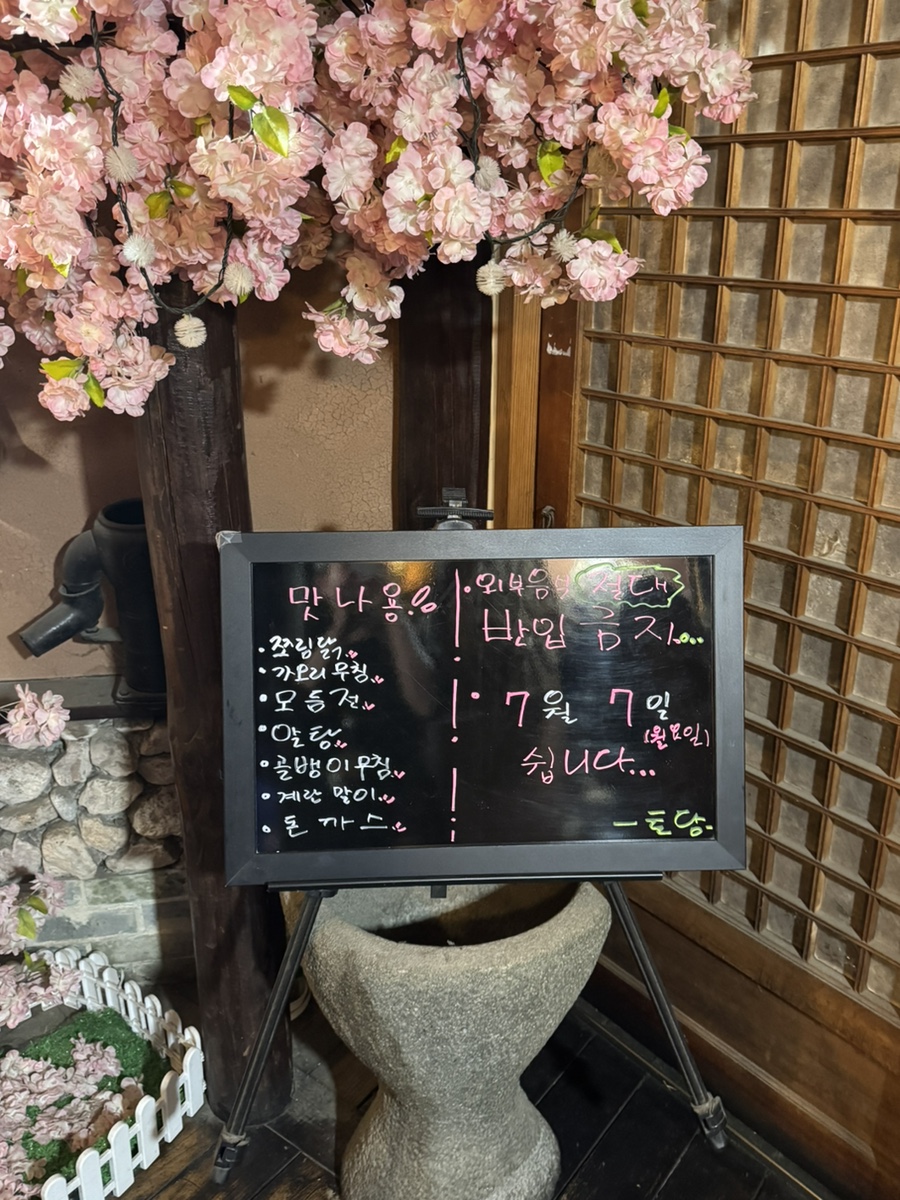 맛나용%
• 쪼림닭
• 가오리무침
• 모듬전
• 알탕
• 골뱅이무침
• 계란 말이
• 돈까스
• 외부음식 절대
반입 금지...
• 7월 7일
(월요일)
쉽니다...
- 토담-